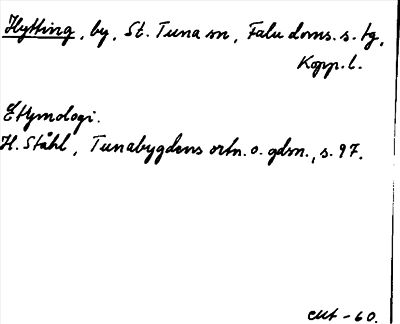 Hytting, by, St. Tuna sn, Falu doms. s. tg,
Kopp. l.
Etymologi.
H. Ståhl, Tunabygdens ortn. o. gdsn., s. 97.
-60.